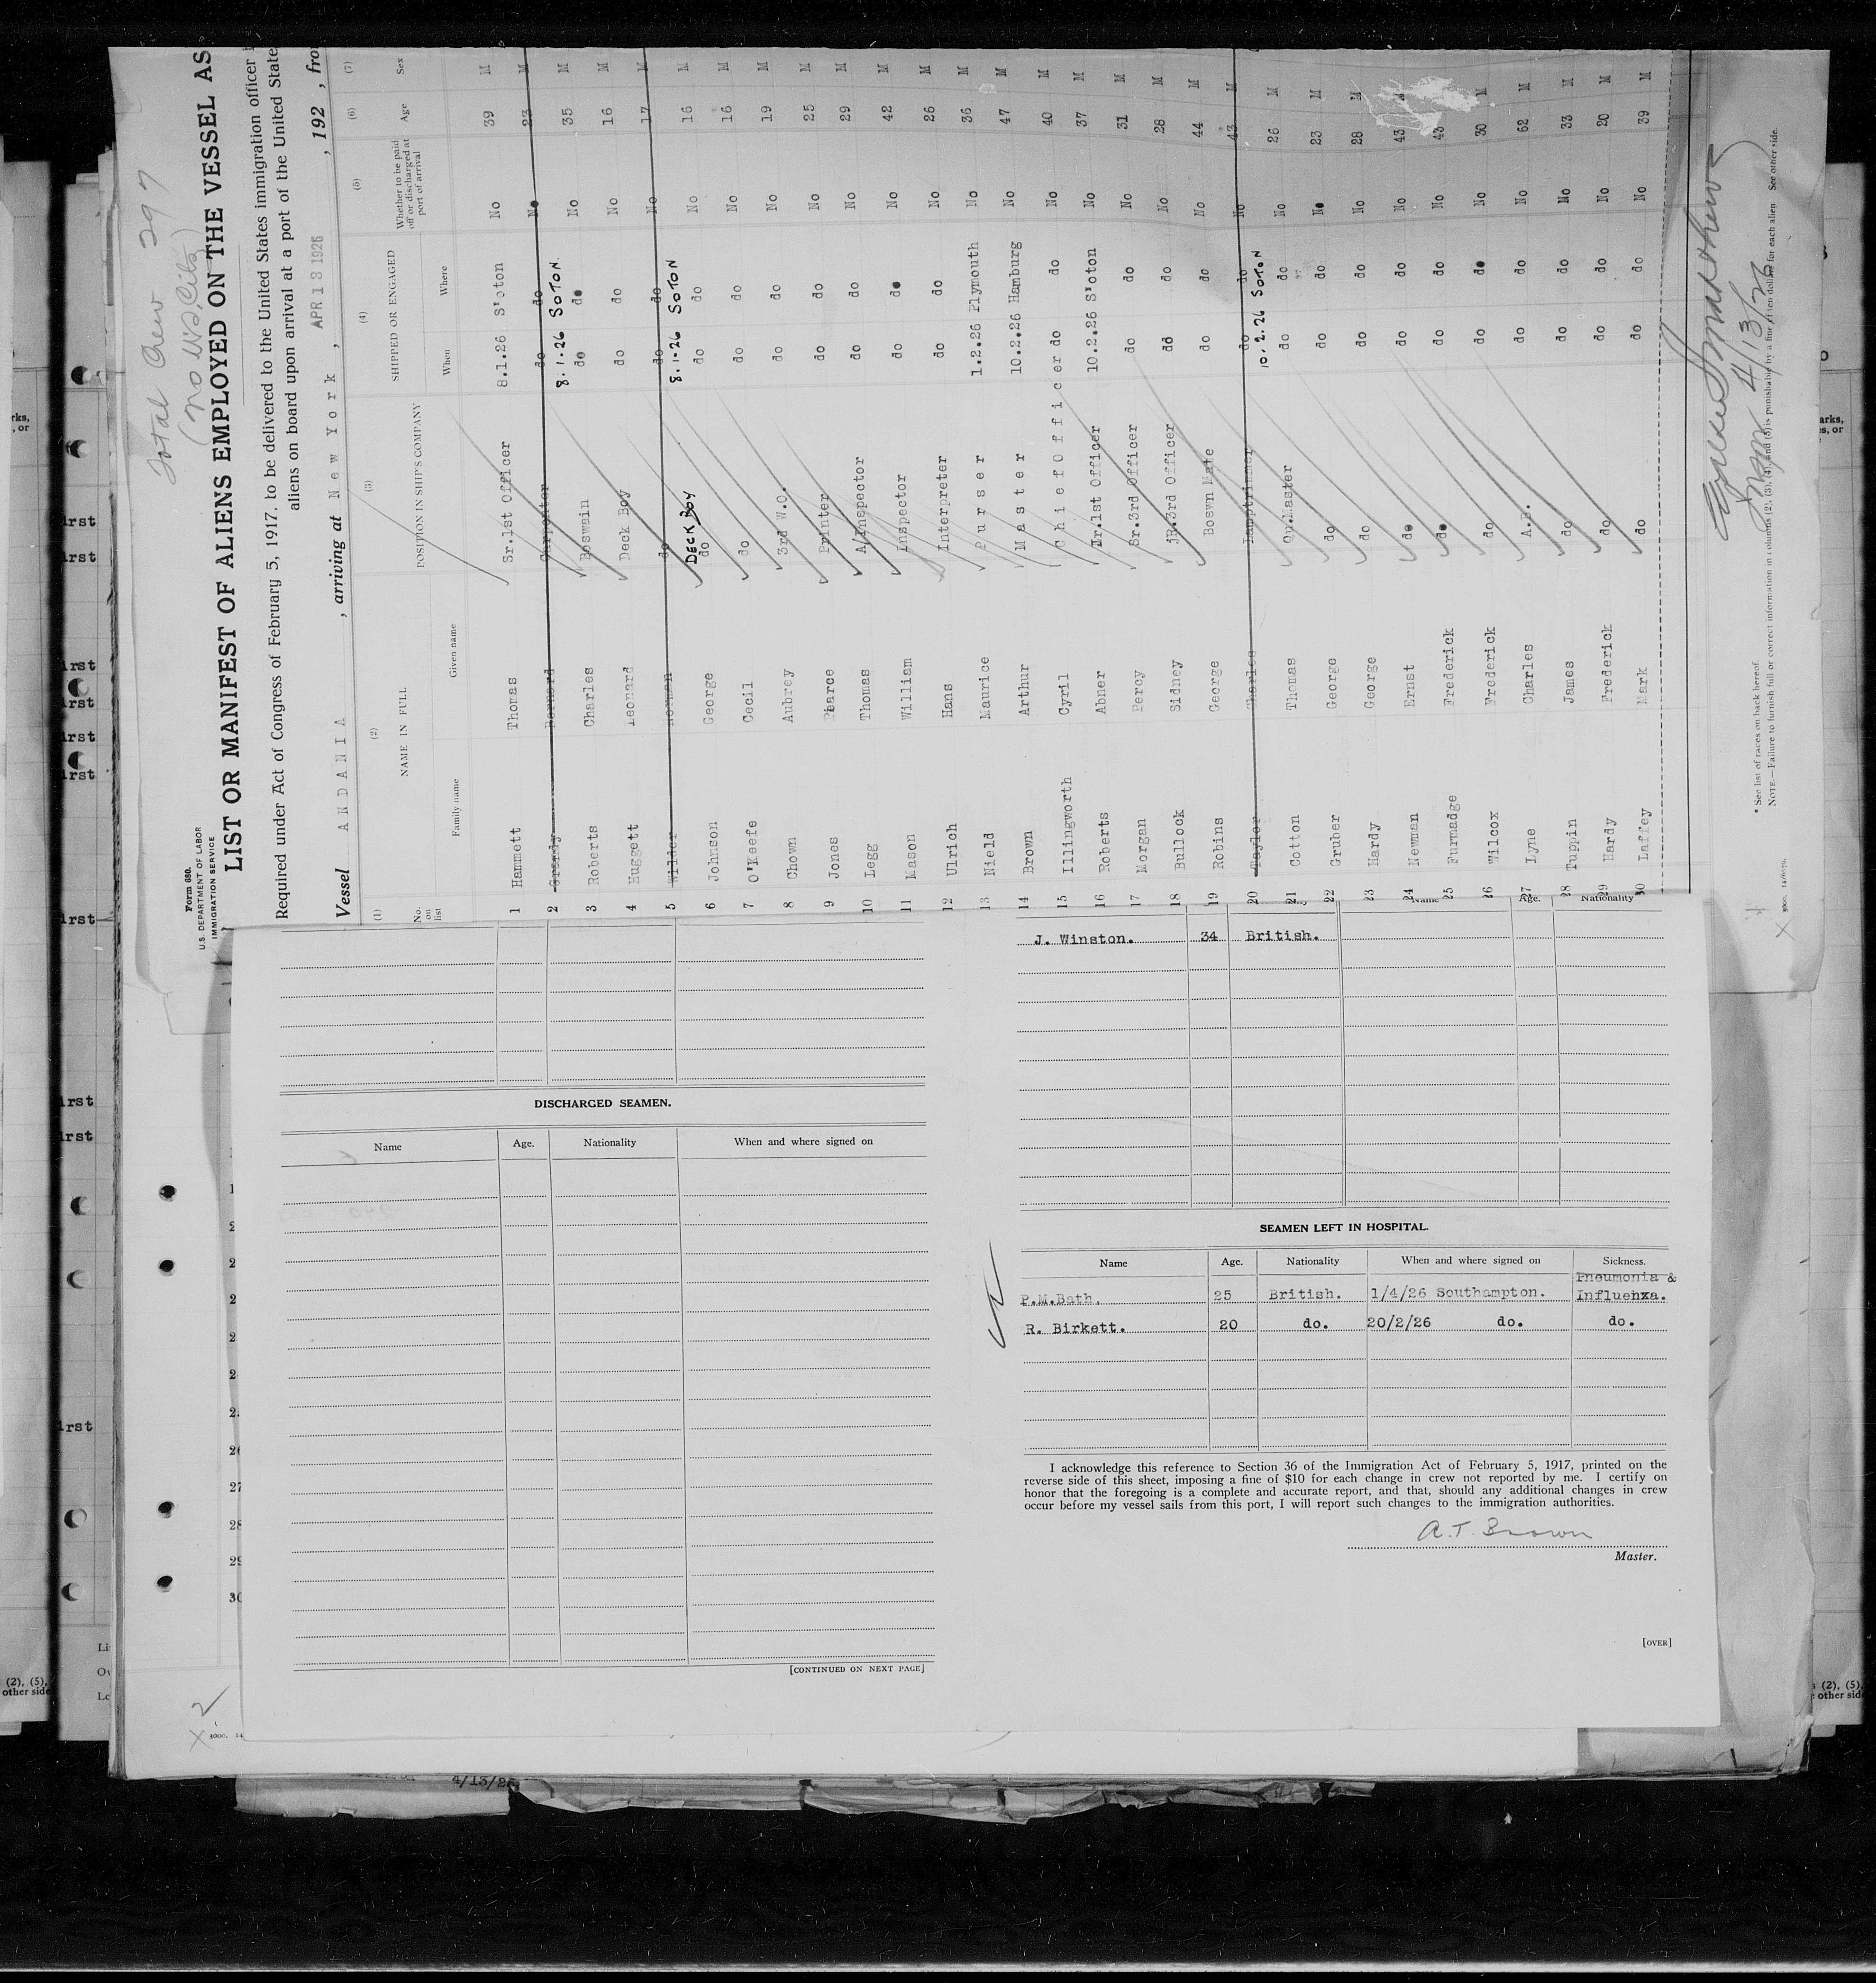 Total Crew 297
(no U.S. Cits)
Form 680.
U.S. DEPARTMENT OF LABOR
IMMIGRATION SERVICE
LIST OR MANIFEST OF ALIENS EMPLOYED ON THE VESSEL AS
Required under Act of Congress of February 5, 1917, to be delivered to the United States immigration officer
aliens on board upon arrival at a port of the United State
Vessel ANDANIA , arriving at New York , APR 13 1926 , 192 , fro
(1) (2) (3) (4) (5) (6) (7)
No. on list NAME IN FULL POSITION IN SHIP'S COMPANY SHIPPED OR ENGAGED Whether to be paid off or discharged at port of arrival Age Sex
Family name Given name When Where
1 Hammett Thomas Sr.1st Officer 8.1.26 S'oton No 39 M
2 Bernard Carpenter do do No 23 M
8.1.26 SOTON
3 Roberts Charles Boswain do do No 35 M
4 Huggett Leonard Deck Boy do do No 16 M
5 Wilder Norman do do do No 17 M
DECK BOY 8.1.26 SOTON
6 Johnson George do do do No 16 M
7 O'Keefe Cecil do do do No 16 M
8 Chown Aubrey 3rd W.O. do do No 19 M
9 Jones Pearce Printer do do No 25 M
10 Legg Thomas A/Inspector do do No 29 M
11 Mason William Inspector do do No 42 M
12 Ulrich Hans Interpreter do do No 26 M
13 Nield Maurice Purser 1.2.26 Plymouth No 36 M
14 Brown Arthur Master 10.2.26 Hamburg No 47 M
15 Illingworth Cyril Chief Officer do do No 40 M
16 Roberts Abner Jr.1st Officer 10.2.26 S'oton No 37 M
17 Morgan Percy Sr.3rd Officer do do No 31 M
18 Bullock Sidney jR.3rd Officer do do No 28 M
19 Robins George Boswn Mate do do No 44 M
20 Taylor Charles Lamptrimmer do do No 43 M
10.2.26 SOTON
21 Cotton Thomas Qr.Master do do No 26 M
22 Gruber George do do do No 23 M
23 Hardy George do do do No 28 M
24 Newman Ernst do do do No 43 M
25 Furmadge Frederick do do do No 43 M
26 Wilcox Frederick do do do No 30 M
27 Lyne Charles A.B. do do No 62 M
28 Tuppin James do do do No 33 M
29 Hardy Frederick do do do No 20 M
30 Laffey Mark do do do No 39 M
4/13/26
* See list of races on back hereof.
NOTE.—Failure to furnish full or correct information in columns (2), (3), (4), and (5) is punishable by a fine of ten dollars for each alien See other side.
DISCHARGED SEAMEN.
Name Age. Nationality When and where signed on
[CONTINUED ON NEXT PAGE]
Name Age. Nationality
J. Winston. 34 British.
SEAMEN LEFT IN HOSPITAL.
Name Age. Nationality When and where signed on Sickness.
P.M.Bath. 25 British. 1/4/26 Southampton. Pneumonia & Influenxa.
R. Birkett. 20 do. 20/2/26 do. do.
I acknowledge this reference to Section 36 of the Immigration Act of February 5, 1917, printed on the
reverse side of this sheet, imposing a fine of $10 for each change in crew not reported by me. I certify on
honor that the foregoing is a complete and accurate report, and that, should any additional changes in crew
occur before my vessel sails from this port, I will report such changes to the immigration authorities.
A.T. Brown
Master.
[OVER]